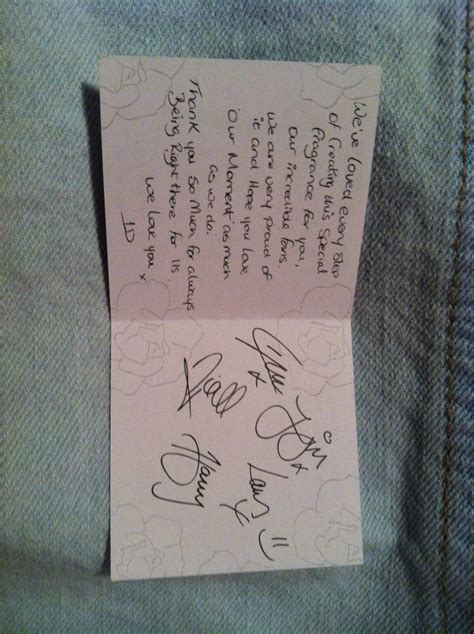 We've loved every step
of creating this special
fragrance for you,
our incredible fans.
We are very proud of
it and Hope you Love
'Our Moment' as much
as we do.
Thank you So Much for always
Being Right there for Us
we love you x
1D
Liam
Niall
Louis
Harry